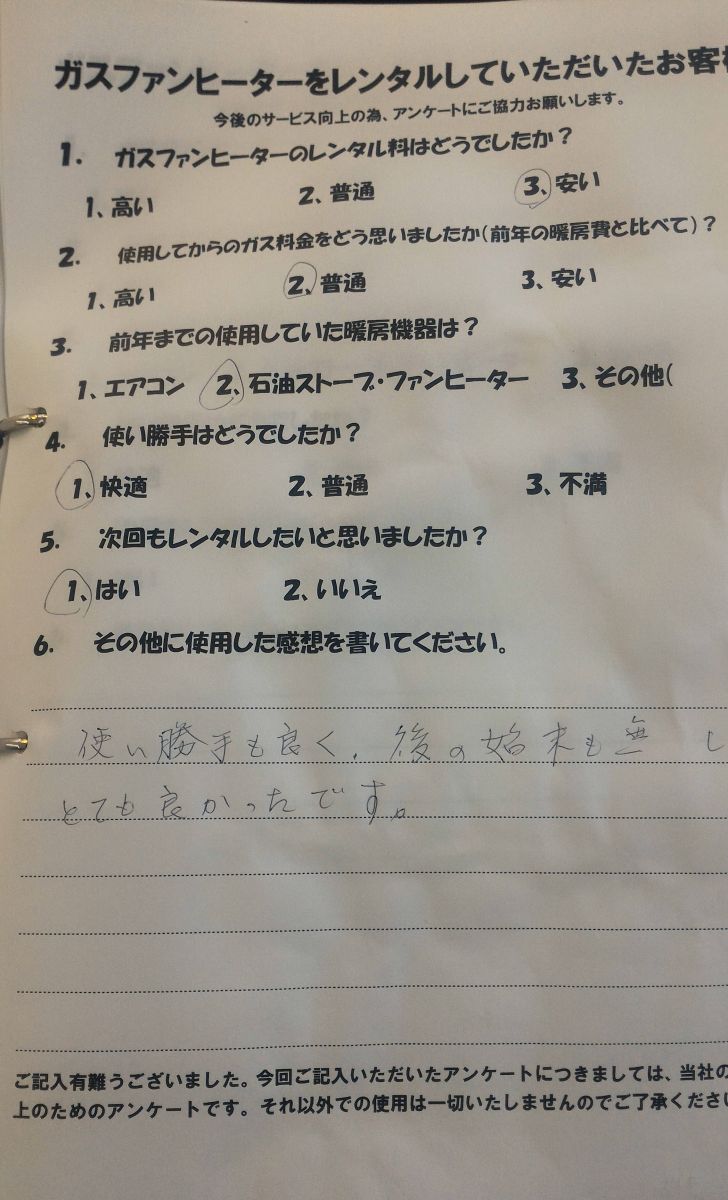 ガスファンヒーターをレンタルしていただいたお客
今後のサービス向上の為、アンケートにご協力お願いします。
1. ガスファンヒーターのレンタル料はどうでしたか？
1、高い 2、普通 3、安い
2. 使用してからのガス料金をどう思いましたか（前年の暖房費と比べて）？
1、高い 2、普通 3、安い
3. 前年までの使用していた暖房機器は？
1、エアコン 2、石油ストーブ・ファンヒーター 3、その他（
4. 使い勝手はどうでしたか？
1、快適 2、普通 3、不満
5. 次回もレンタルしたいと思いましたか？
1、はい 2、いいえ
6. その他に使用した感想を書いてください。
使い勝手も良く、後の始末も無し
とても良かったです。
ご記入有難うございました。今回ご記入いただいたアンケートにつきましては、当社の
上のためのアンケートです。それ以外での使用は一切いたしませんのでご了承くださ